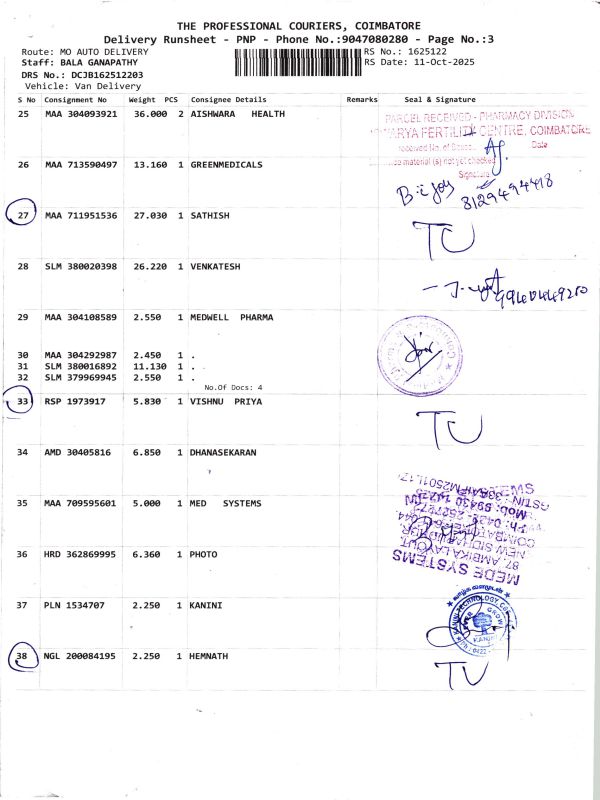 THE PROFESSIONAL COURIERS, COIMBATORE
Delivery Runsheet - PNP - Phone No.:9047080280 - Page No.:3
Route: MO AUTO DELIVERY RS No.: 1625122
Staff: BALA GANAPATHY RS Date: 11-Oct-2025
DRS No.: DCJB162512203
Vehicle: Van Delivery
S No Consignment No Weight PCS Consignee Details Remarks Seal & Signature
25 MAA 304093921 36.000 2 AISHWARA HEALTH
PARCEL RECEIVED - PHARMACY DIVISION
FERTILITY CENTRE, COIMBATORE
received No. of Date
material (s) not yet checked
Signature
26 MAA 713590497 13.160 1 GREENMEDICALS
8129494418
27 MAA 711951536 27.030 1 SATHISH
TU
28 SLM 380020398 26.220 1 VENKATESH
29 MAA 304108589 2.550 1 MEDWELL PHARMA
30 MAA 304292987 2.450 1 .
31 SLM 380016892 11.130 1 .
32 SLM 379969945 2.550 1 .
No.Of Docs: 4
33 RSP 1973917 5.830 1 VISHNU PRIYA
TU
34 AMD 30405816 6.850 1 DHANASEKARAN
35 MAA 709595601 5.000 1 MED SYSTEMS
MEDE SYSTEMS
87, AMBIKA LAYOUT,
36 HRD 362869995 6.360 1 PHOTO
37 PLN 1534707 2.250 1 KANINI
38 NGL 200084195 2.250 1 HEMNATH
TU